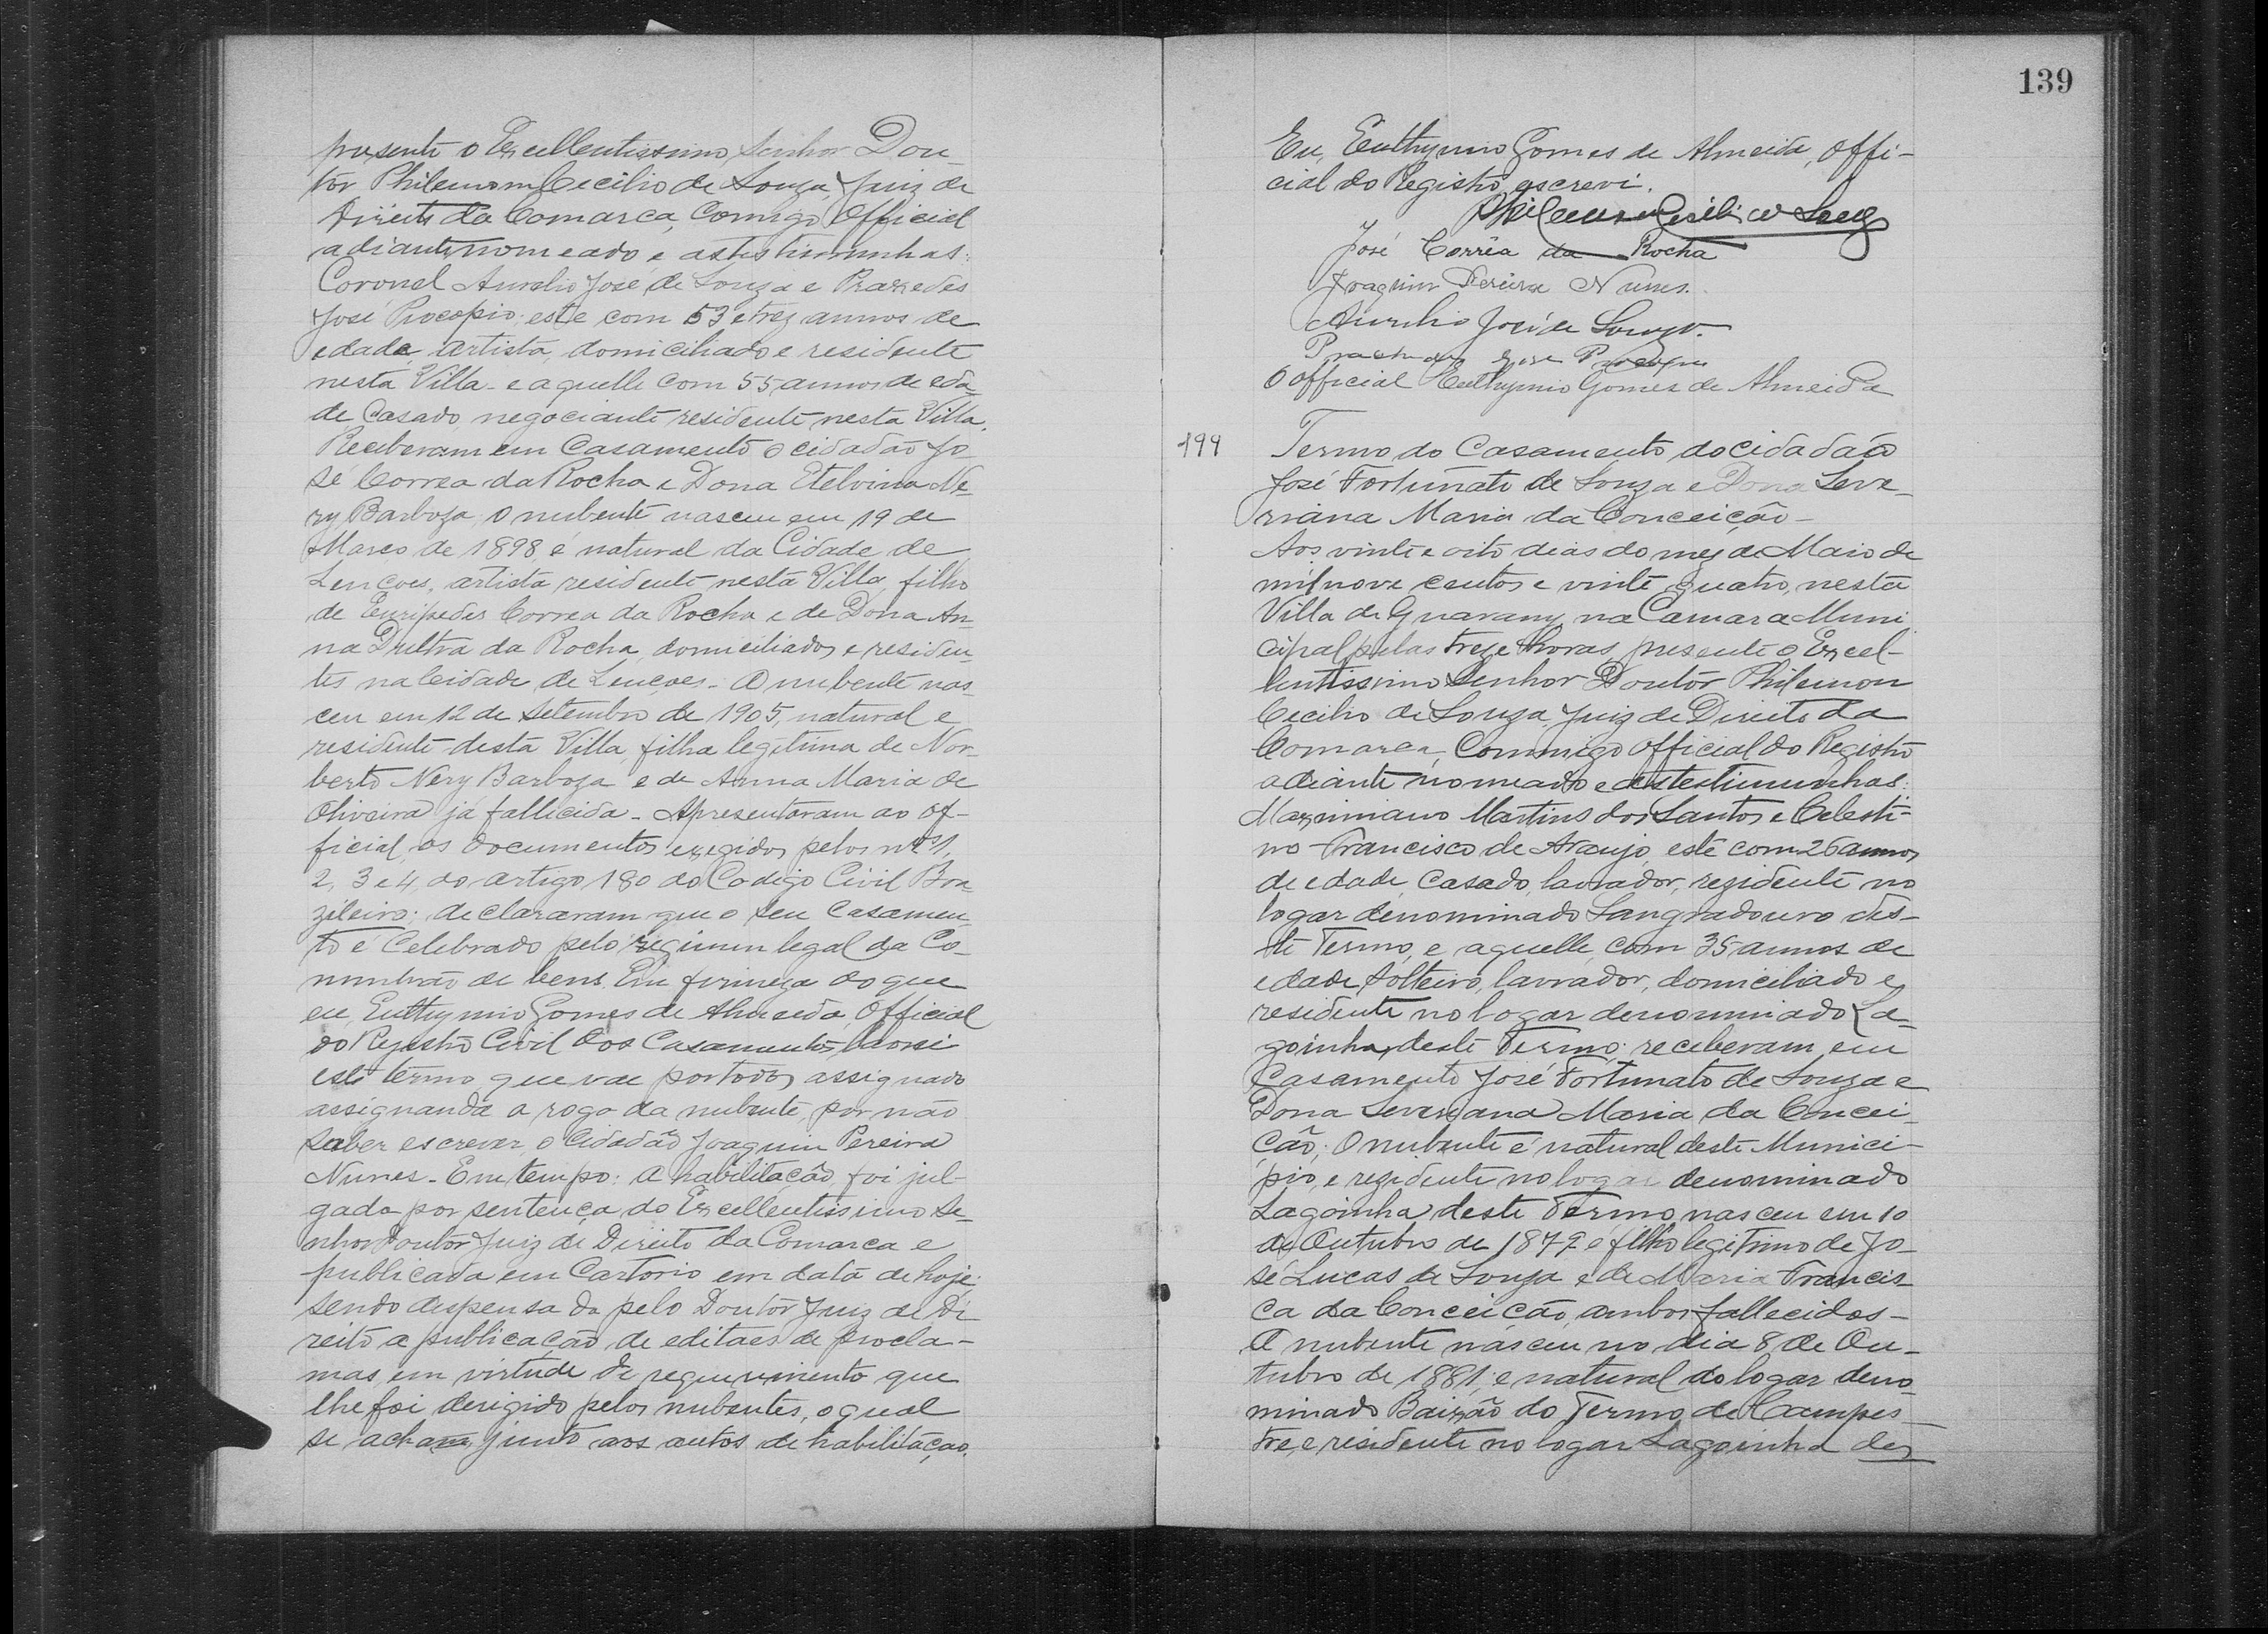 presente o Excellentissimo Senhor Dou-
tor Philemom Cecilio de Souza, Juiz de
Direito da Comarca, Comigo Official
adiante nomeado e as testimunhas:
Coronel Aurelio José de Souza e Praxedes
José Procopio; este com 53 e trez annos de
edade, artista, domiciliado e residente
nesta Villa - e aquelle com 55 annos de eda
de, Casado, negociante residente nesta Villa.
Receberam em Casamento o cidadão Jo
sé Correa da Rocha e Dona Etelvina Ne-
ry Barboza, o nubente nasceu em 19 de
Março de 1898 é natural da Cidade de
Lençoes, artista residente nesta Villa, filho
de Euripedes Correa da Rocha e de Dona An-
na Dultra da Rocha, domiciliados e residen-
tes na Cidade de Lençoes - A nubente nas-
ceu em 12 de Setembro de 1905, natural e
residente desta Villa, filha legitima de Nor-
berto Nery Barboza e de Anna Maria de
Oliveira já fallicida - Apresentaram ao of-
ficial, os documentos exegidos pelos nos 1,
2, 3 e 4, do artigo 180 do Codigo Civil Bra-
zileiro; declararam que o seu casamen-
to é Celebrado pelo regimen legal da Co-
munhão de bens. Em firmeza do que
eu, Euthymio Gomes de Almeida, Official
do Registro Civil dos Casamentos, lavrei
este termo que vae por todos assignado
assignando a rogo da nubente, por não
saber escrever, o Cidadão Joaquim Pereira
Nunes - Em tempo: a habilitação foi jul-
gada por sentença do Excellentissimo Se-
nhor Doutor Juiz de Direito da Comarca e
publicada em Cartorio em data de hoje;
sendo dispensada pelo Doutor Juiz de Di
reito a publicação de editaes de procla-
mas, em virtude de requerimento que
lhe foi derigido pelos nubentes, o qual
se acham junto aos autos de habilitaçao.
139
Eu, Euthymio Gomes de Almeida, offi-
cial do Registro, escrevi.
Philemom Cecilio de Souza
José Corrêa da Rocha
Joaquim Pereira Nunes.
Aurelio José de Souza.
Praxedes José Procopio
O official Euthymio Gomes de Almeida
199 Termo do Casamento do Cidadão
José Fortunato de Souza e Dona Seve-
riana Maria da Conceição -
Aos vinte e oito dias do mez de Maio de
mil nove centos e vinte quatro, nesta
Villa de Guarany, na Camara Muni
cipal, pelas treze horas, presente o Excel-
lentissimo Senhor Doutor Philemon
Cecilio de Souza, Juiz de Direito da
Comarca, Commigo official do Registro
adiante nomeado e as testimunhas:
Maximiano Martins dos Santos e Celesti-
no Francisco de Araujo, este com 26 annos
de edade, Casado, lavrador, rezidente no
logar denominado Sangradouro des-
te Termo, e aquelle, com 35 annos de
edade, solteiro, lavrador, domiciliado e
residente no logar denominado La-
goinha, deste Termo; receberam em
Casamento José Fortunato de Souza e
Dona Severiana Maria da Concei-
ção; O nubente é natural deste Munici-
pio, e rezidente no logar denominado
Lagoinha, deste Termo, nasceu em 10
de Outubro de 1872 é filho legitimo de Jo-
sé Lucas de Souza e de Maria Francis-
ca da Conceição, ambos fallecidos -
A nubente nasceu no dia 8 de Ou-
tubro de 1881, e natural do logar deno-
minado Baixão do Termo de Campes-
tre, e residente no logar Lagoinha des